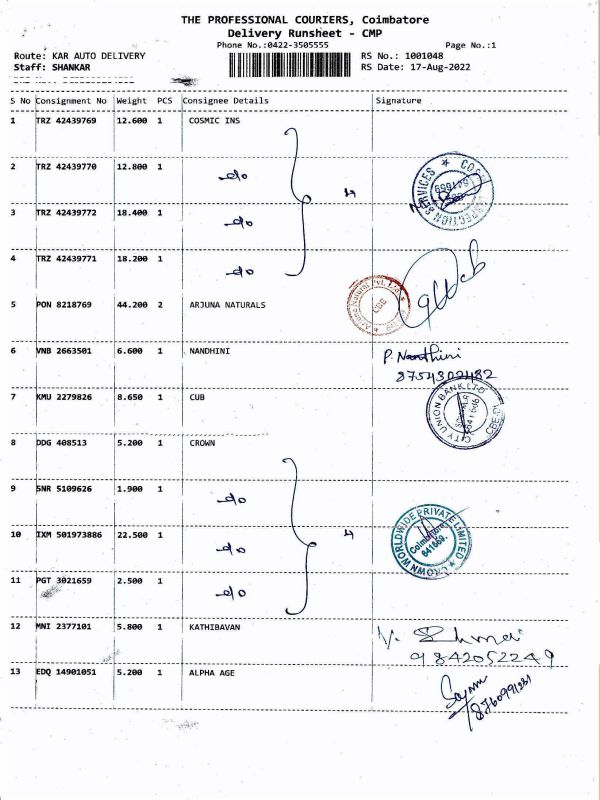 THE PROFESSIONAL COURIERS, Coimbatore
Delivery Runsheet - CMP
Phone No.:0422-3505555 Page No.:1
Route: KAR AUTO DELIVERY RS No.: 1001048
Staff: SHANKAR RS Date: 17-Aug-2022
S No Consignment No Weight PCS Consignee Details Signature
1 TRZ 42439769 12.600 1 COSMIC INS
2 TRZ 42439770 12.800 1 do
3 TRZ 42439772 18.400 1 do
4
4 TRZ 42439771 18.200 1 do
5 PON 8218769 44.200 2 ARJUNA NATURALS
CBE
6 VNB 2663501 6.600 1 NANDHINI P. Nandhini
8754302482
7 KMU 2279826 8.650 1 CUB
CITY UNION BANK LTD
8 DDG 408513 5.200 1 CROWN
9 SNR 5109626 1.900 1 do
10 IXM 501973886 22.500 1 do 4
CROWN WORLDWIDE PRIVATE LIMITED
Coimbatore
641659.
11 PGT 3021659 2.500 1 do
12 MNI 2377101 5.800 1 KATHIBAVAN
9842052249
13 EDQ 14901051 5.200 1 ALPHA AGE
8760991231